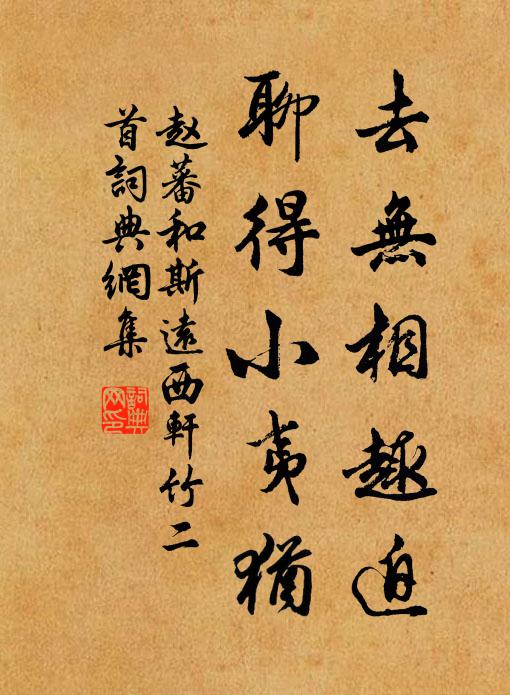 去無相趣迫
聊得小夷猶
赵蕃和斯遠西軒竹二
首詞典網集
詞典
网印